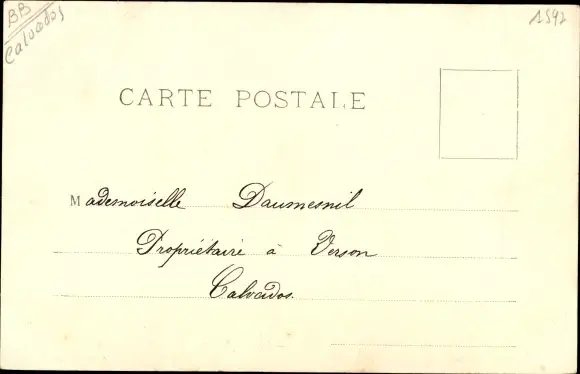 BB
Calvados
1592
CARTE POSTALE
Mademoiselle Daumesnil
Propriétaire à Verson
Calvados.